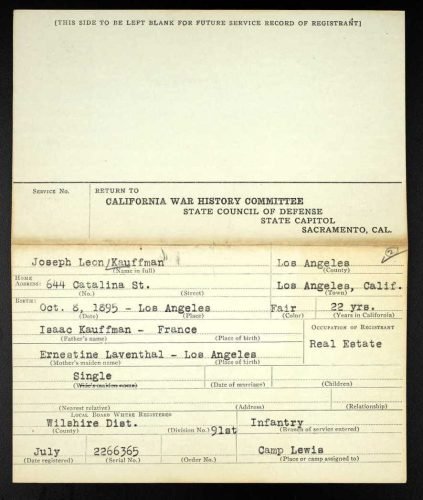 [THIS SIDE TO BE LEFT BLANK FOR FUTURE SERVICE RECORD OF REGISTRANT]
SERVICE NO. RETURN TO
CALIFORNIA WAR HISTORY COMMITTEE
STATE COUNCIL OF DEFENSE
STATE CAPITOL
SACRAMENTO, CAL.
Joseph Leon/Kauffman Los Angeles
(Name in full) (County)
HOME
ADDRESS: 644 Catalina St. Los Angeles, Calif.
(No.) (Street) (Town)
BIRTH: Oct. 8, 1895 - Los Angeles Fair 22 yrs.
(Date) (Place) (Color) (Years in California)
Isaac Kauffman - France OCCUPATION OF REGISTRANT
(Father's name) (Place of birth)
Real Estate
Ernestine Laventhal - Los Angeles
(Mother's maiden name) (Place of birth)
Single
(Wife's maiden name) (Date of marriage) (Children)
(Nearest relative) (Address) (Relationship)
LOCAL BOARD WHERE REGISTERED
Wilshire Dist. 91st Infantry
(County) (Division No.) (Branch of service entered)
July 2266365 Camp Lewis
(Date registered) (Serial No.) (Order No.) (Place or camp assigned to)